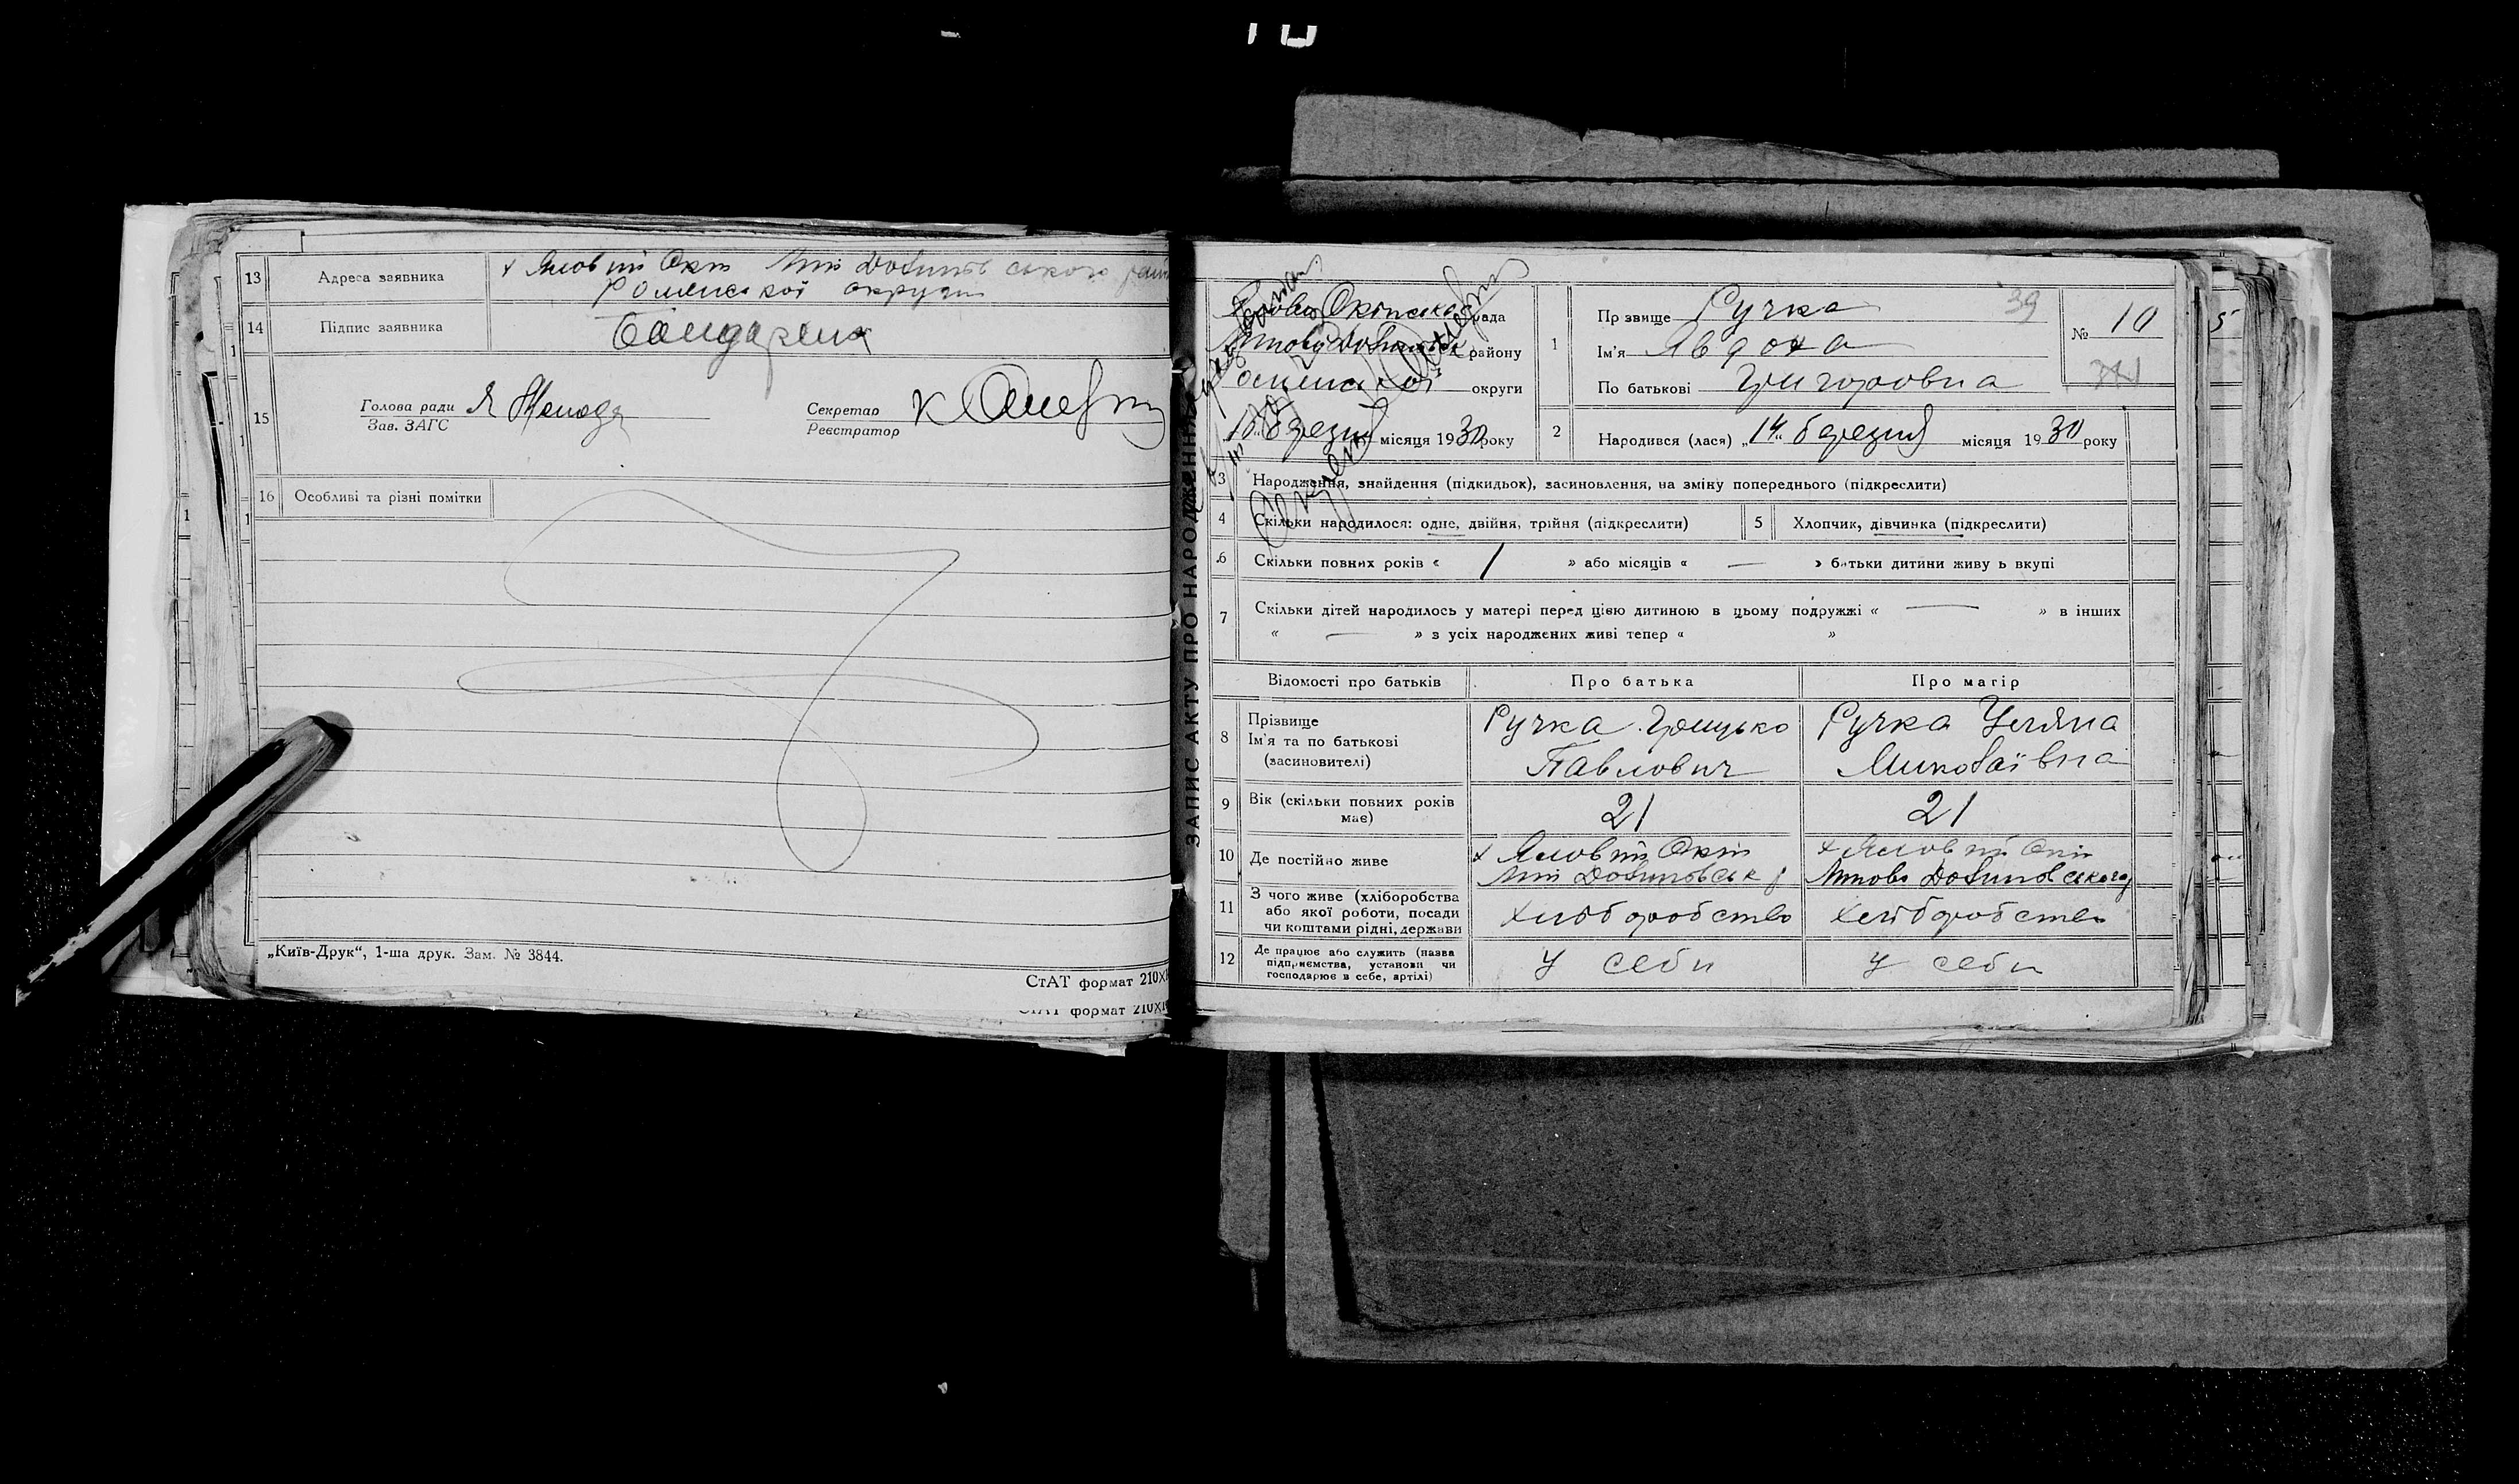 13 Адреса заявника х Яловий Окіп
Роменської округи
14 Підпис заявника
15 Голова ради
Зав. ЗАГС
Секретар
Реєстратор
16 Особливі та різні помітки
„Київ-Друк“, 1-ша друк. Зам. № 3844.
СтАТ формат 210Х
СтАТ формат 210Х
ЗАПИС АКТУ ПРО НАРОДЖЕННЯ
рада
району
округи
березня місяця 1930 року
1 Пр звище Ручка 39
Ім'я Явдоха
По батькові Григоровна
№ 10
2 Народився (лася) „14“ березня місяця 1930 року
3 Народження, знайдення (підкидьок), засиновлення, на зміну попереднього (підкреслити)
4 Скільки народилося: одне, двійня, трійня (підкреслити) 5 Хлопчик, дівчинка (підкреслити)
6 Скільки повних років « 1 » або місяців « — » батьки дитини живу ь вкупі
7 Скільки дітей народилось у матері перед цією дитиною в цьому подружжі « — » в інших
« — » з усіх народжених живі тепер « »
Відомості про батьків Про батька Про матір
8 Прізвище
Ім'я та по батькові
(засиновителі)
Ручка Грицько
Павлович
Ручка Уляна
Миколаївна
9 Вік (скільки повних років
має)
21 21
10 Де постійно живе
х Яловий Окіп
х Яловий Окіп
11 З чого живе (хліборобства
або якої роботи, посади
чи коштами рідні, держави
хліборобство хліборобство
12 Де працює або служить (назва
підприємства, установи чи
господарює в себе, артілі)
у себи у себи
5